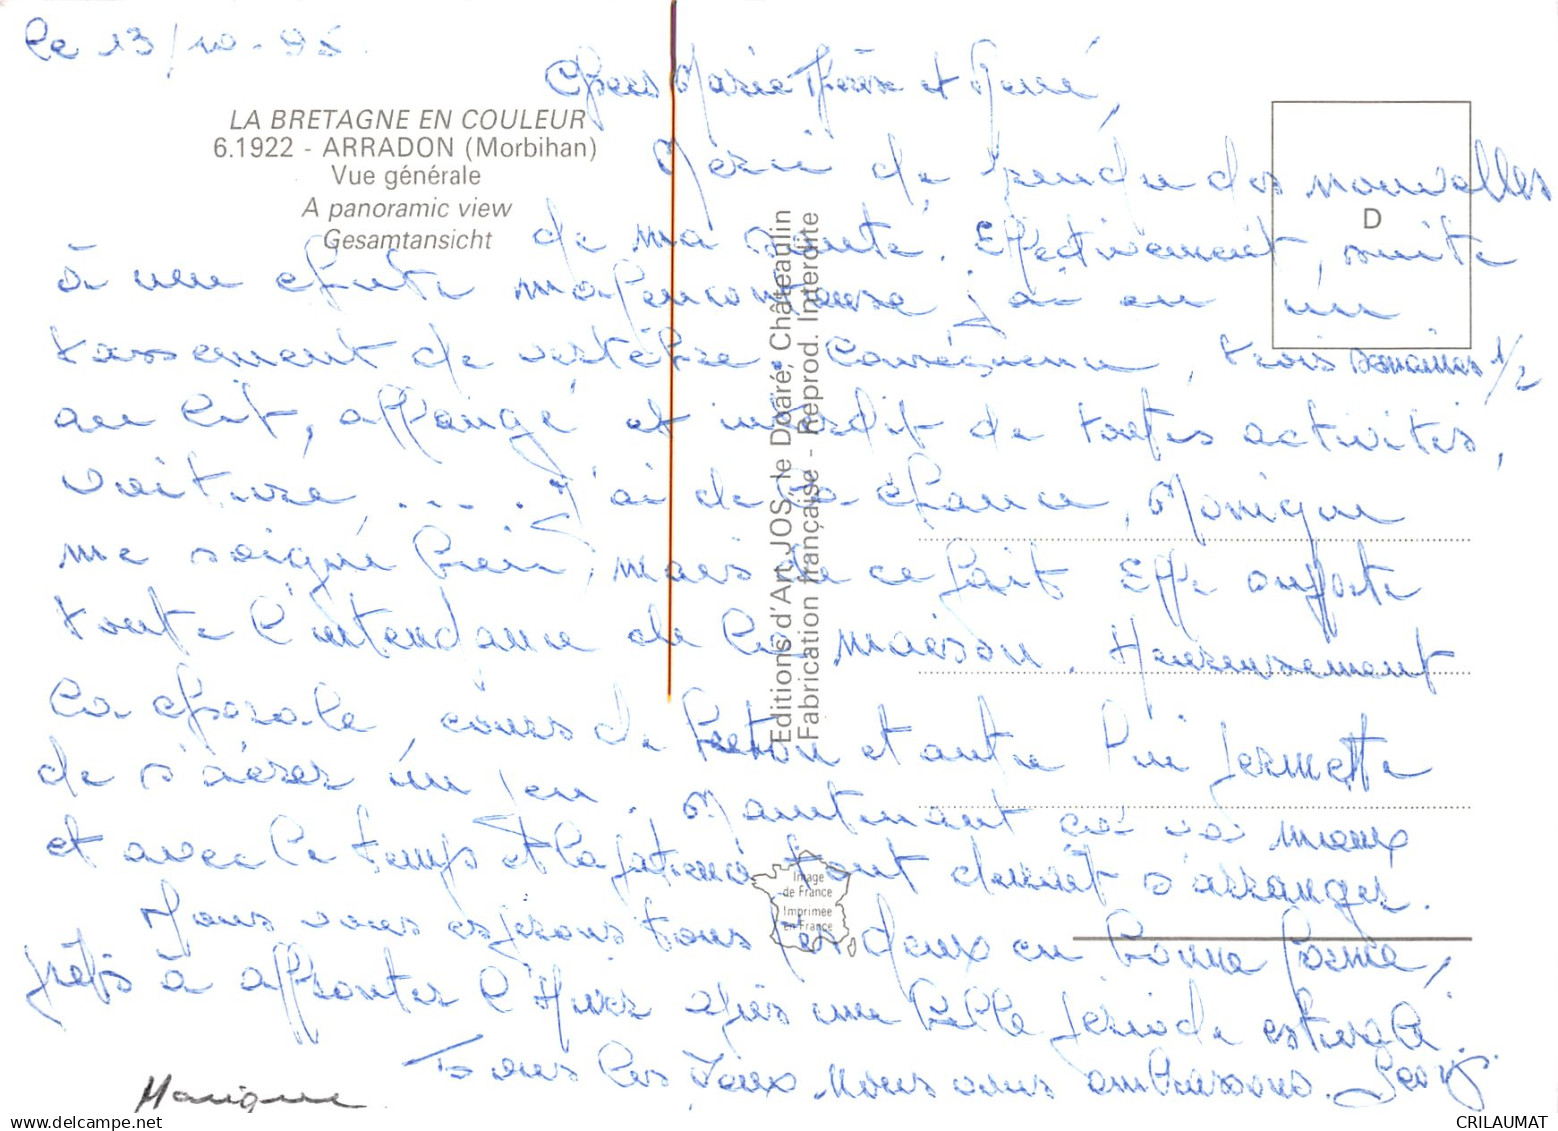 le 13/10-95.
Chers Marie Thérèse et René,
LA BRETAGNE EN COULEUR
6.1922 - ARRADON (Morbihan)
Vue générale
A panoramic view
Gesamtansicht
D
Merci de prendre des nouvelles
de ma santé. Effectivement, suite
à une chute malencontreuse j'ai eu un
tassement de vertèbre. Conséquence, trois semaines 1/2
au lit, allongé et interdit de toutes activités,
voiture, .... J'ai de la chance, Monique
me soigne bien, mais de ce fait elle
toute l'intendance de la maison. Heureusement
la chorale, cours de breton et autre lui permette
de s'aérer un peu. Maintenant ça va mieux
et avec le temps et la patience tout devrait s'arranger.
Nous vous espérons tous les deux en bonne forme,
prêts à affronter l'Hiver après une belle période estivale.
Tous les deux nous vous embrassons.
Monique
Editions d'Art JOS, le Doaré, Châteaulin
Fabrication française - Reprod. Interdite
Image
de France
Imprimée
en France
CRILAUMAT